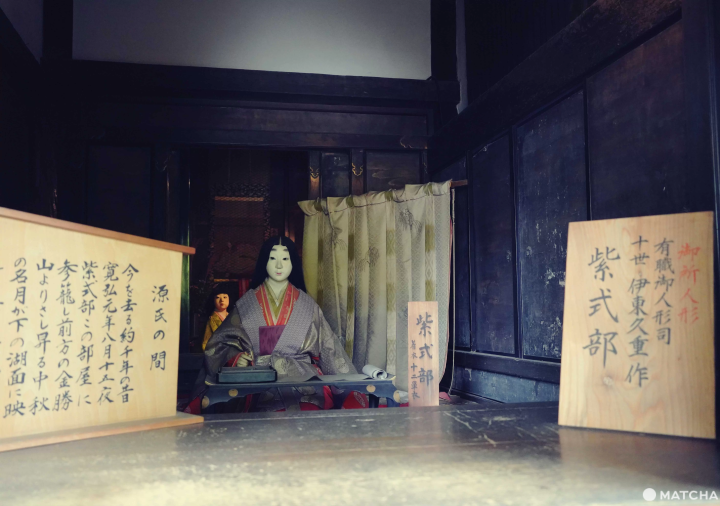 源氏の間
今を去る約千年の昔
寛弘元年八月十五夜
紫式部この部屋に
参籠し前方の金勝
山よりさし昇る中秋
の名月が下の湖面に映
紫式部
御所人形
有職御人形司
十世 伊東久重 作
紫式部
MATCHA